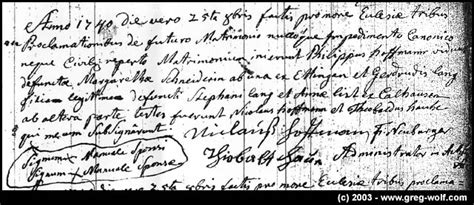 Anno 1740 die vero 25ta 8bris factis pro more Eclesiæ tribus
Proclamationibus de futuro Matrimonio nulloque impedimento Canonico
neque Civili reperto Matrimonium inierunt Philippus hoffmann viduus
defunctæ Margaretha Schneiderin ab una ex Ettingen et Gerdrudis lang
filia legittima defuncti Stephani lang et Annæ list ex Calhausen
ab altera parte testes fuerunt Nicolaus hoffmann et Theobaldus haube
qui mecum Subsignarunt.
Niclauß Hoffmann fr Neuberger
Signum + Manuale Sponsi
Signum + Manuale Sponsæ
Administrator in
die vero 25ta 8bris factis pro more Eclesiæ tribus proclama
(c) 2003 - www.greg-wolf.com